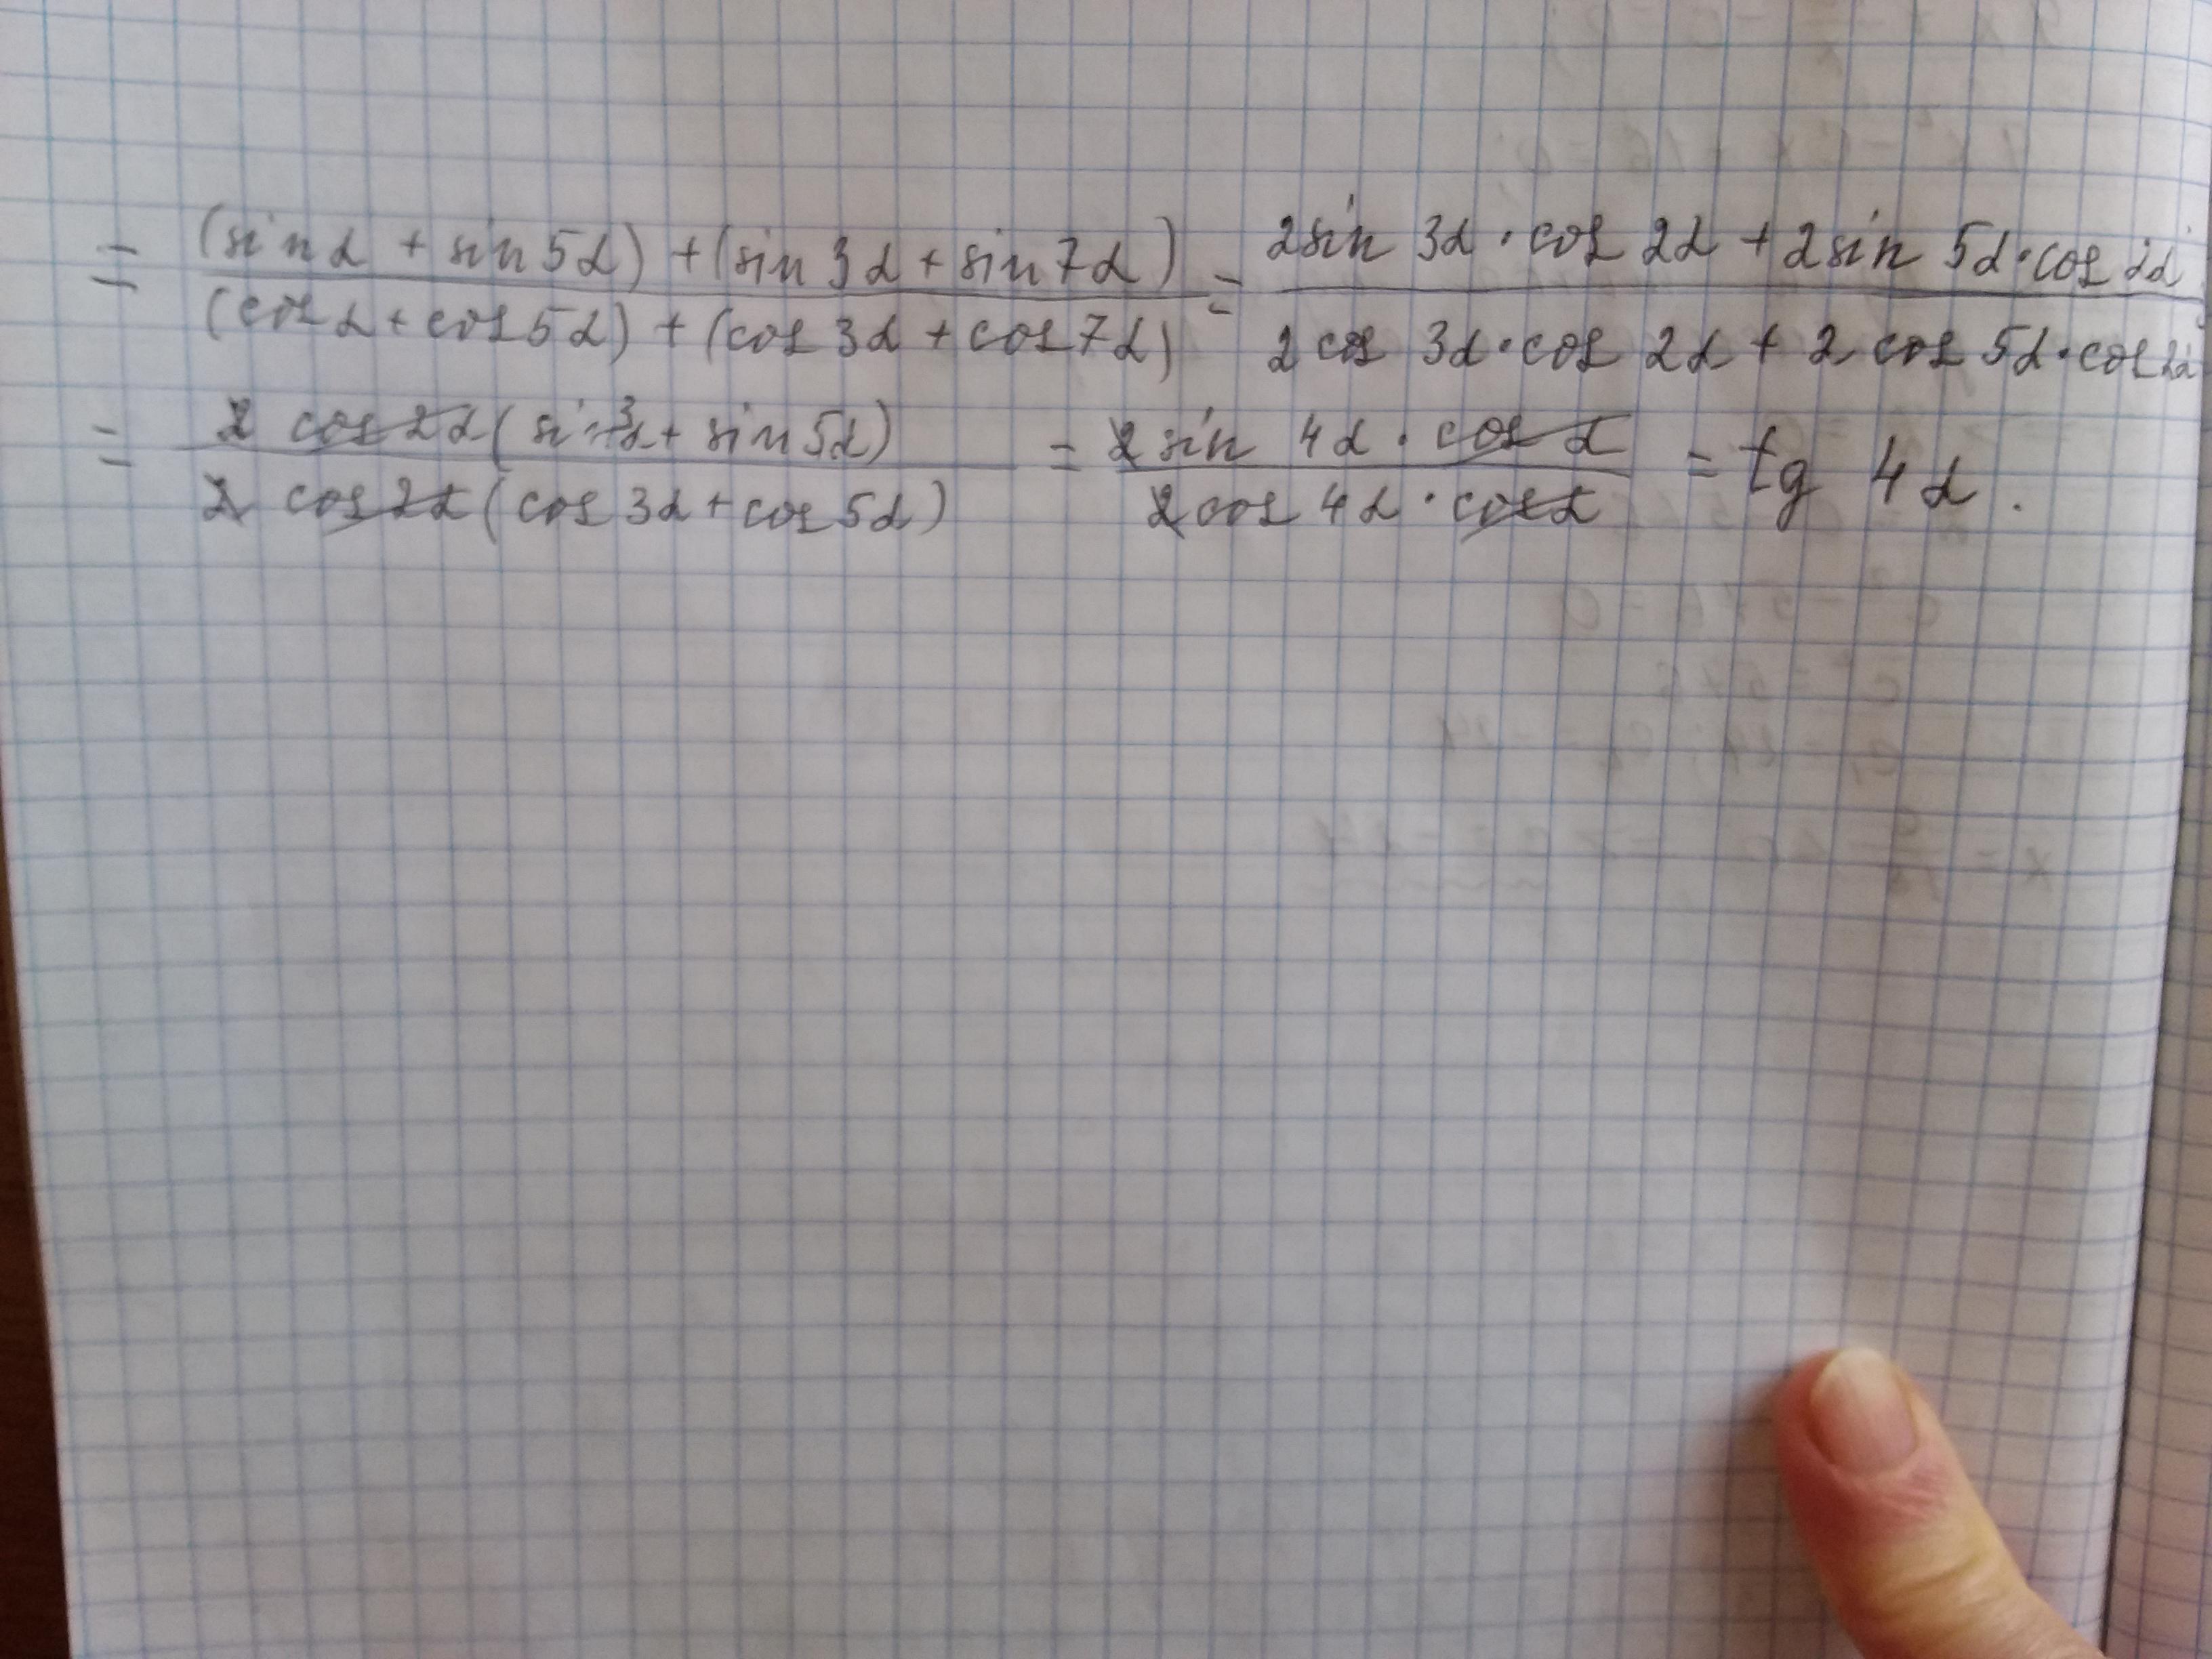 = (sin α + sin 5α) + (sin 3α + sin 7α) / (cos α + cos 5α) + (cos 3α + cos 7α) = 2 sin 3α · cos 2α + 2 sin 5α · cos 2α / 2 cos 3α · cos 2α + 2 cos 5α · cos 2α
= 2 cos 2α (sin 3α + sin 5α) / 2 cos 2α (cos 3α + cos 5α) = 2 sin 4α · cos α / 2 cos 4α · cos α = tg 4α.